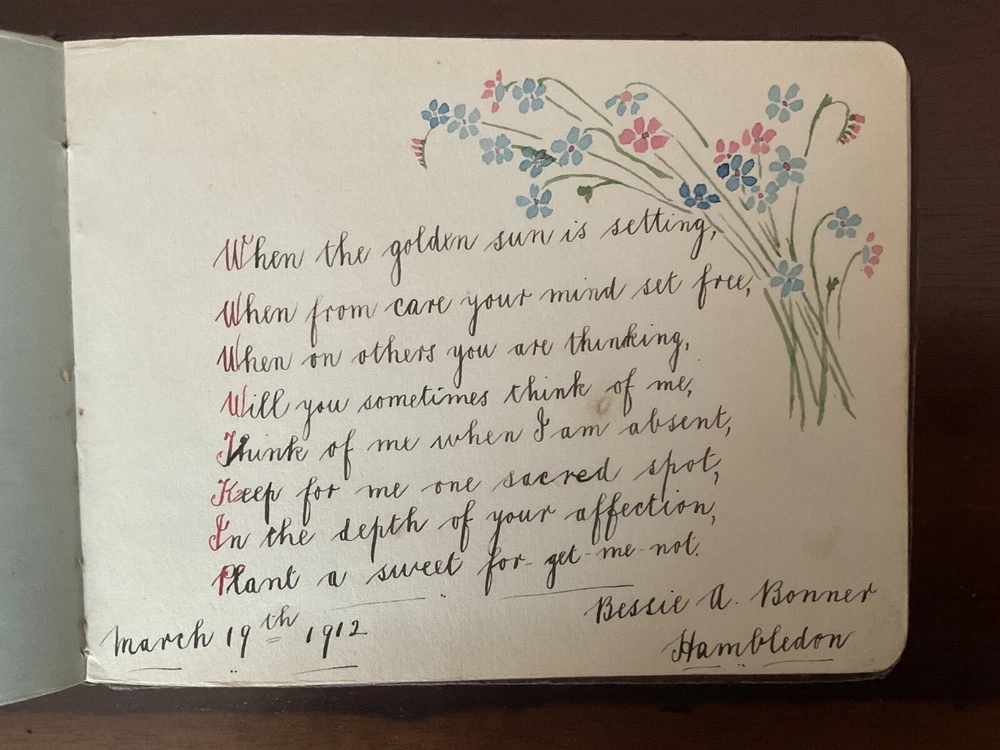 When the golden sun is setting,
When from care your mind set free,
When on others you are thinking,
Will you sometimes think of me,
Think of me when I am absent,
Keep for me one sacred spot,
In the depth of your affection,
Plant a sweet for-get-me-not.
Bessie A. Bonner
March 19th 1912
Hambledon